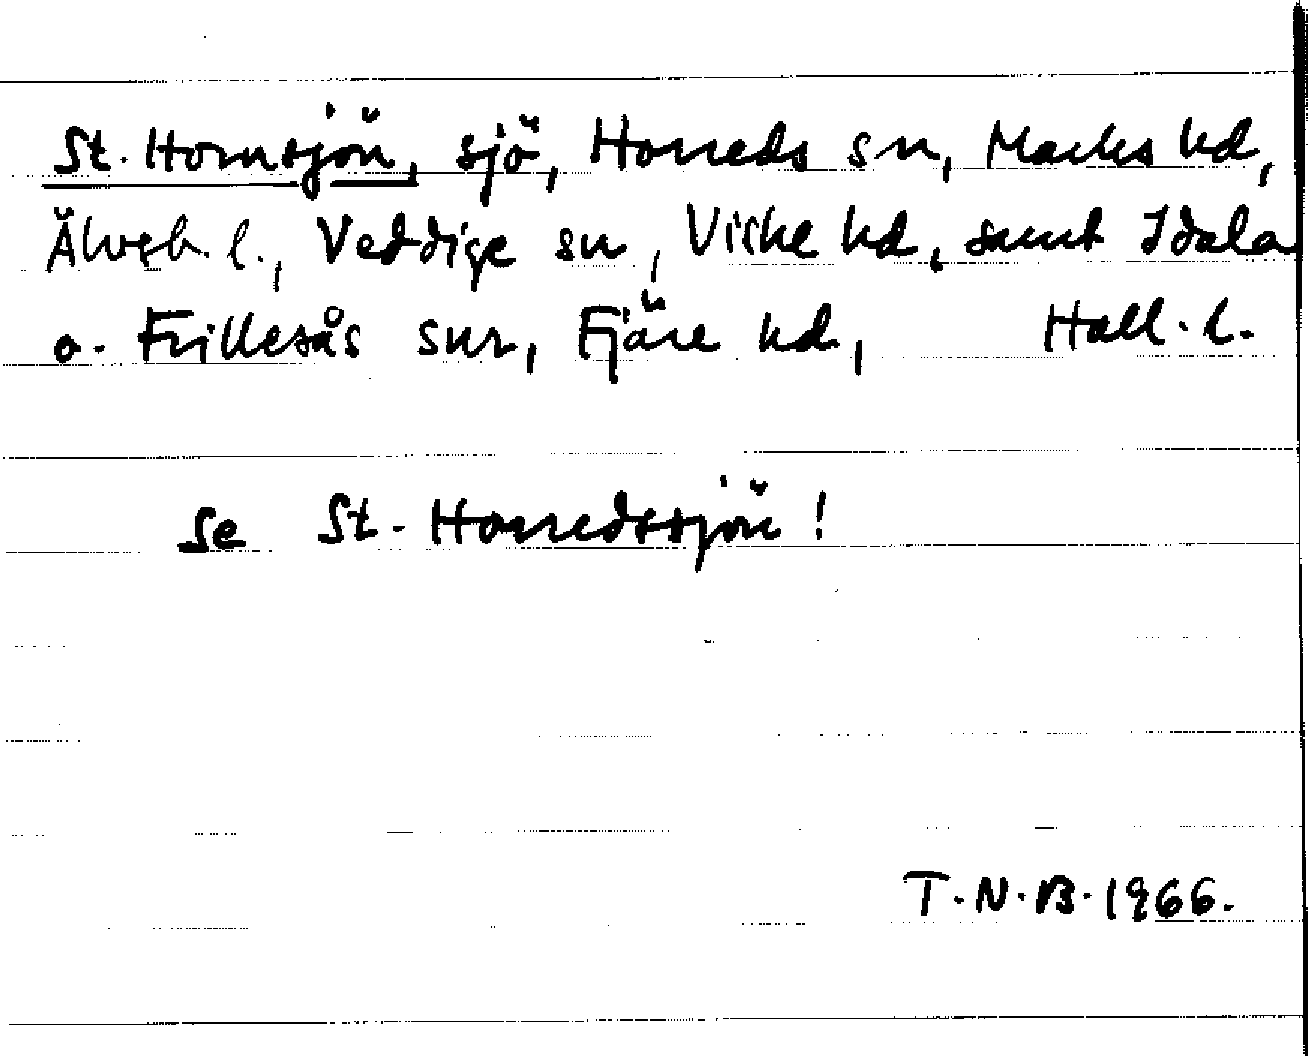 St. Hornsjön, sjö, Horreds sn, Marks hd,
Älvsb. l., Veddige sn, Viske hd, samt Idala
o. Frillesås snr, Fjäre hd, Hall. l.
Se St. Horredssjön!
T.N.B. 1966.